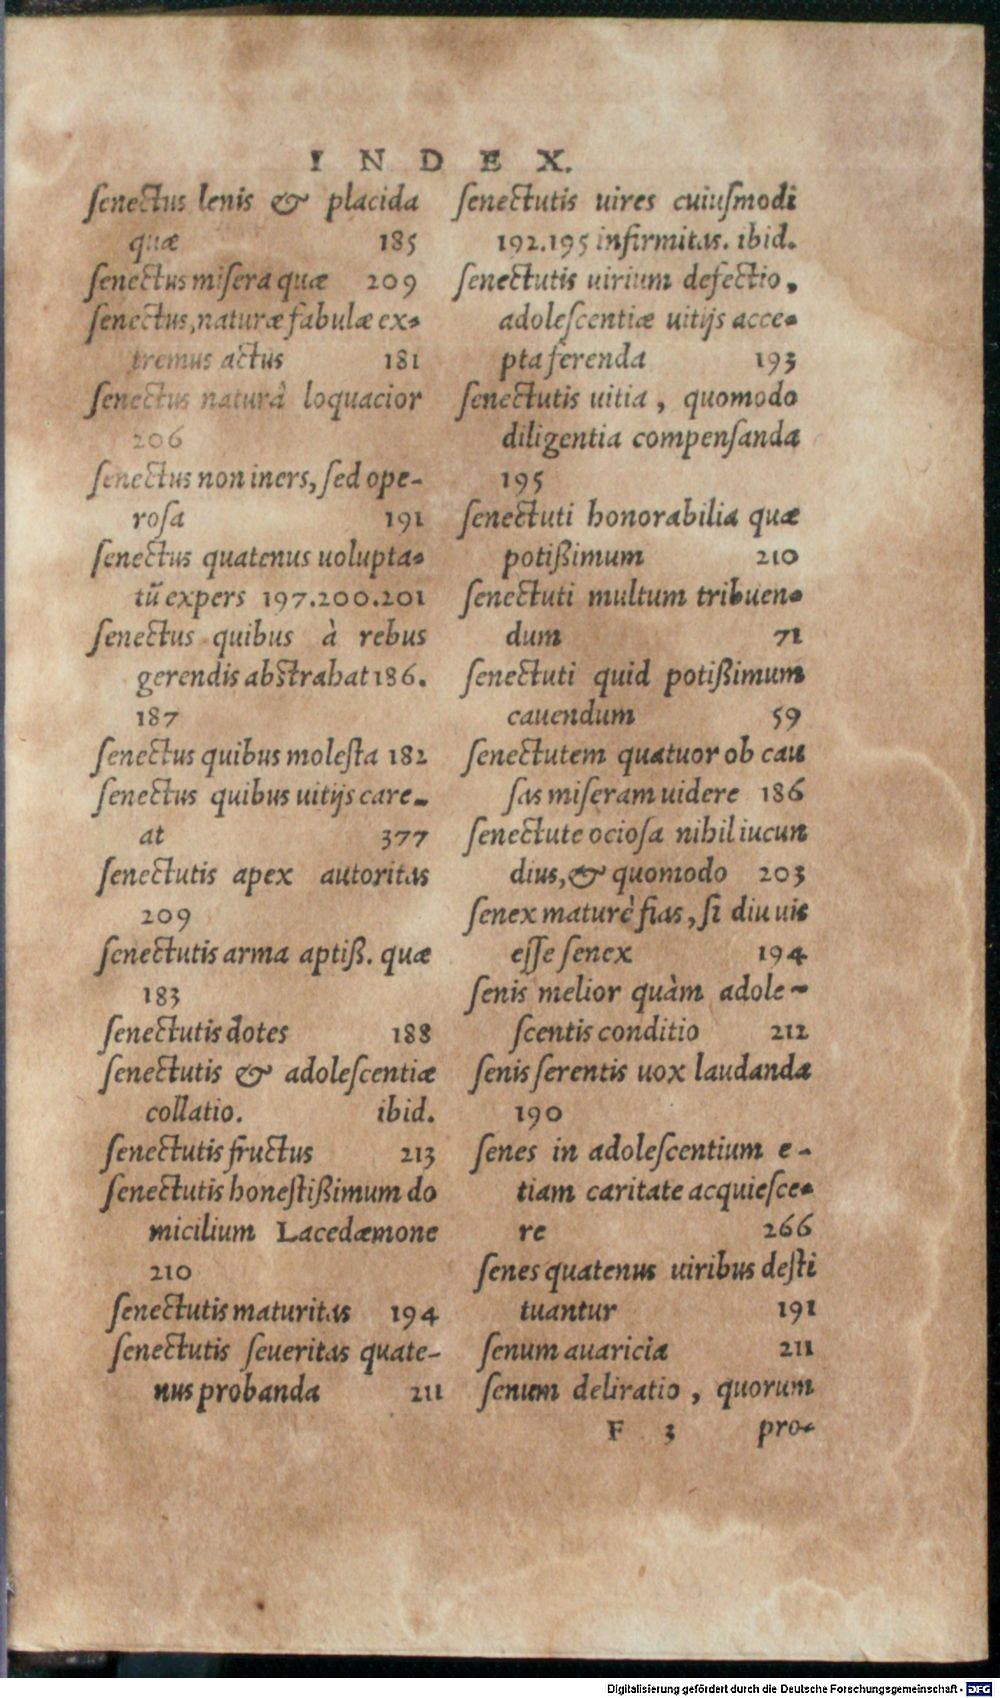 INDEX.
ſenectus lenis & placida
quæ 185
ſenectus miſera quæ 209
ſenectus, naturæ fabulæ ex-
tremus actus 181
ſenectus naturâ loquacior
206
ſenectus non iners, ſed ope-
roſa 191
ſenectus quatenus uolupta-
tū expers 197.200.201
ſenectus quibus à rebus
gerendis abstrahat 186.
187
ſenectus quibus moleſta 182
ſenectus quibus uitijs care-
at 377
ſenectutis apex autoritas
209
ſenectutis arma aptiß. quæ
183
ſenectutis dotes 188
ſenectutis & adoleſcentiæ
collatio. ibid.
ſenectutis fructus 213
ſenectutis honeſtißimum do
micilium Lacedæmone
210
ſenectutis maturitas 194
ſenectutis ſeueritas quate-
nus probanda 211
ſenectutis uires cuiuſmodi
192.195 infirmitas. ibid.
ſenectutis uirium defectio,
adoleſcentiæ uitijs acce-
pta ferenda 193
ſenectutis uitia, quomodo
diligentia compenſanda
195
ſenectuti honorabilia quæ
potißimum 210
ſenectuti multum tribuen-
dum 71
ſenectuti quid potißimum
cauendum 59
ſenectutem quatuor ob cau
ſas miſeram uidere 186
ſenectute ocioſa nihil iucun
dius, & quomodo 203
ſenex maturè fias, ſi diu uis
eſſe ſenex 194
ſenis melior quàm adole-
ſcentis conditio 212
ſenis ſerentis uox laudanda
190
ſenes in adoleſcentium e-
tiam caritate acquieſce-
re 266
ſenes quatenus uiribus deſti
tuantur 191
ſenum auaricia 211
ſenum deliratio, quorum
F 3 pro-
Digitalisierung gefördert durch die Deutsche Forschungsgemeinschaft - DFG